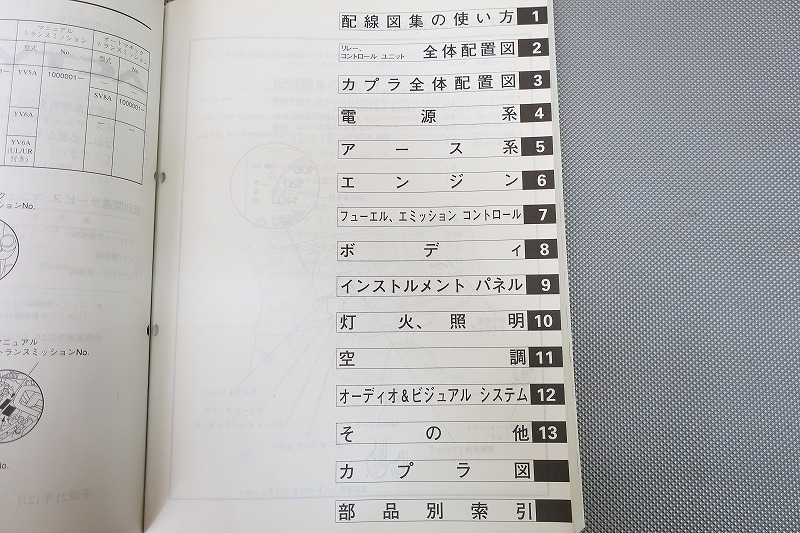 マニュアル
トランスミッション
オートマチック
トランスミッション
型式
No.
型式
No.
YV5A
1000001―
SV8A
1000001―
YV6A
―
―
YV6A
(UL/UR
付き)
―
ションNo.
マニュアル
トランスミッションNo.
No.
配線図集の使い方 1
リレー、コントロール ユニット 全体配置図 2
カプラ全体配置図 3
電源系 4
アース系 5
エンジン 6
フューエル、エミッション コントロール 7
ボディ 8
インストルメント パネル 9
灯火、照明 10
空調 11
オーディオ&ビジュアル システム 12
その他 13
カプラ図
部品別索引